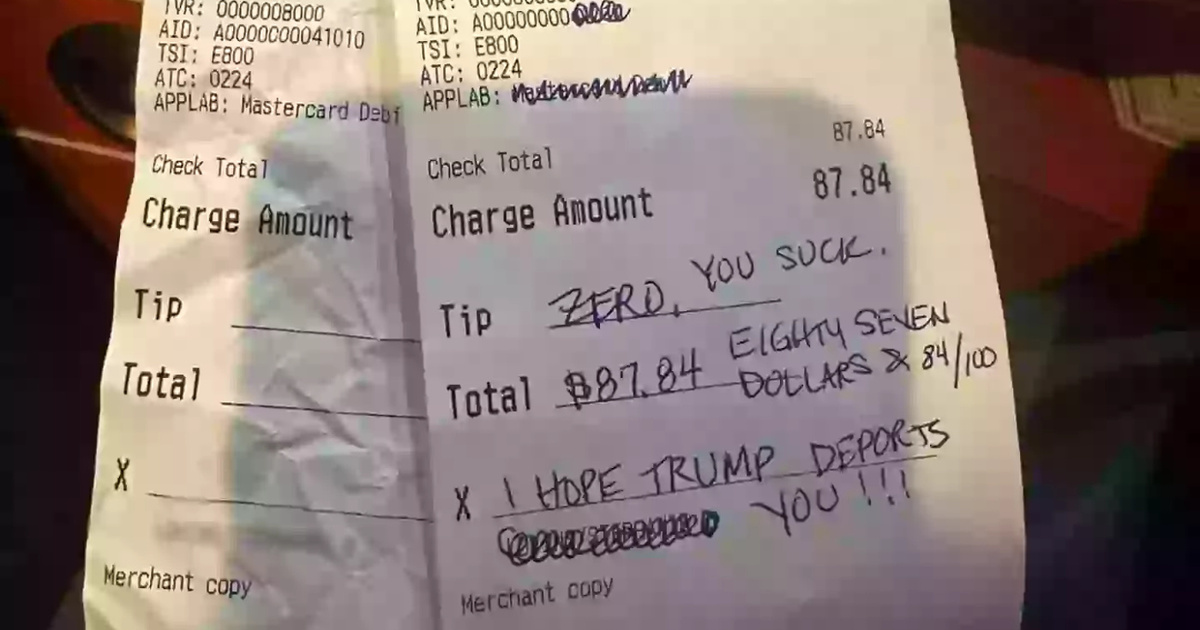 TVR: 0000008000
AID: A0000000041010
TSI: E800
ATC: 0224
APPLAB: Mastercard Debi
Check Total
Charge Amount
Tip
Total
X
Merchant copy
AID: A00000000
TSI: E800
ATC: 0224
APPLAB:
87.84
Check Total
87.84
Charge Amount
Tip ZERO. YOU SUCK.
Total $87.84 EIGHTY SEVEN
DOLLARS & 84/100
X I HOPE TRUMP DEPORTS
YOU!!!
Merchant copy